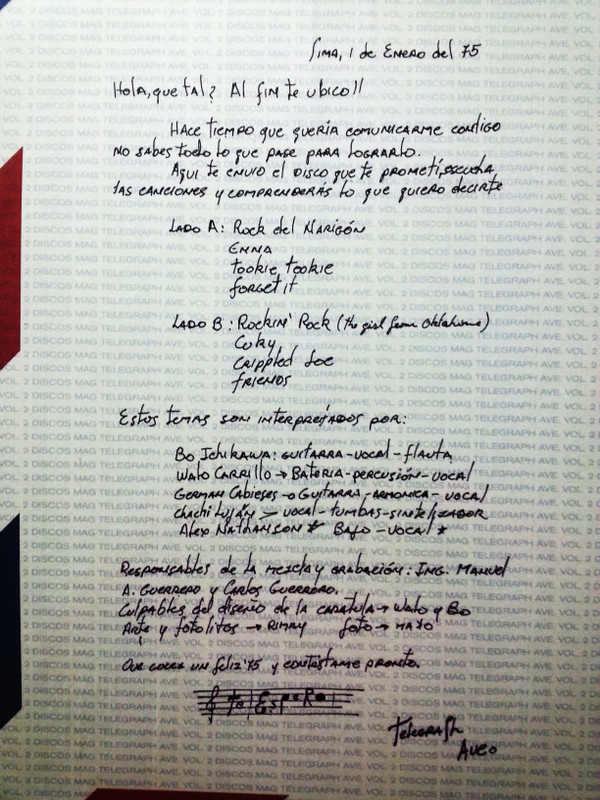 Lima, 1 de Enero del 75
Hola, que tal? Al fin te ubico!!
Hace tiempo que queria comunicarme contigo
no sabes todo lo que pase para lograrlo.
Aqui te envio el disco que te prometi, escucha
las canciones y comprenderás lo que quiero decirte
Lado A: Rock del Narigón
Emma
tookie, tookie
forget it
Lado B: Rockin' Rock (the girl from Oklahoma)
Coky
Crippled Joe
friends
Estos temas son interpretados por:
Bo Ichikawa: guitarra-vocal-flauta
Walo Carrillo → Bateria-percusión-vocal
German Cabieses - Guitarra-armonica-vocal
Chachi Luján > vocal-tumbas-sintetizador
Alex Nathanson * Bajo-vocal *
Responsables de la mezcla y grabación: Ing. Manuel
A. Guerrero y Carlos Guerrero.
Culpables del diseño de la caratula → Walo y Bo
Arte y fotolitos → Rimay foto → Mayo
Que goces un feliz '75 y contéstame pronto.
te Espero
Telegraph
Aveo
VOL. 2 DISCOS MAG TELEGRAPH AVE. VOL. 2 DISCOS MAG TELEGRAPH AVE.